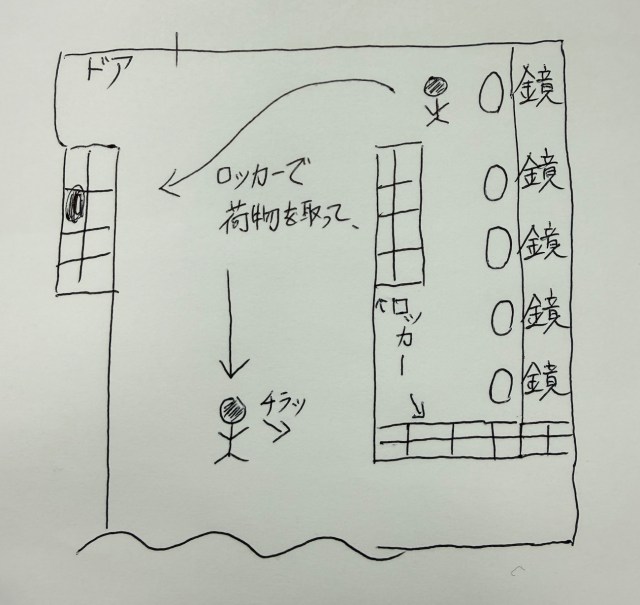 ドア
鏡
鏡
鏡
鏡
鏡
ロッカーで
荷物を取って、
ロッカー
チラッ